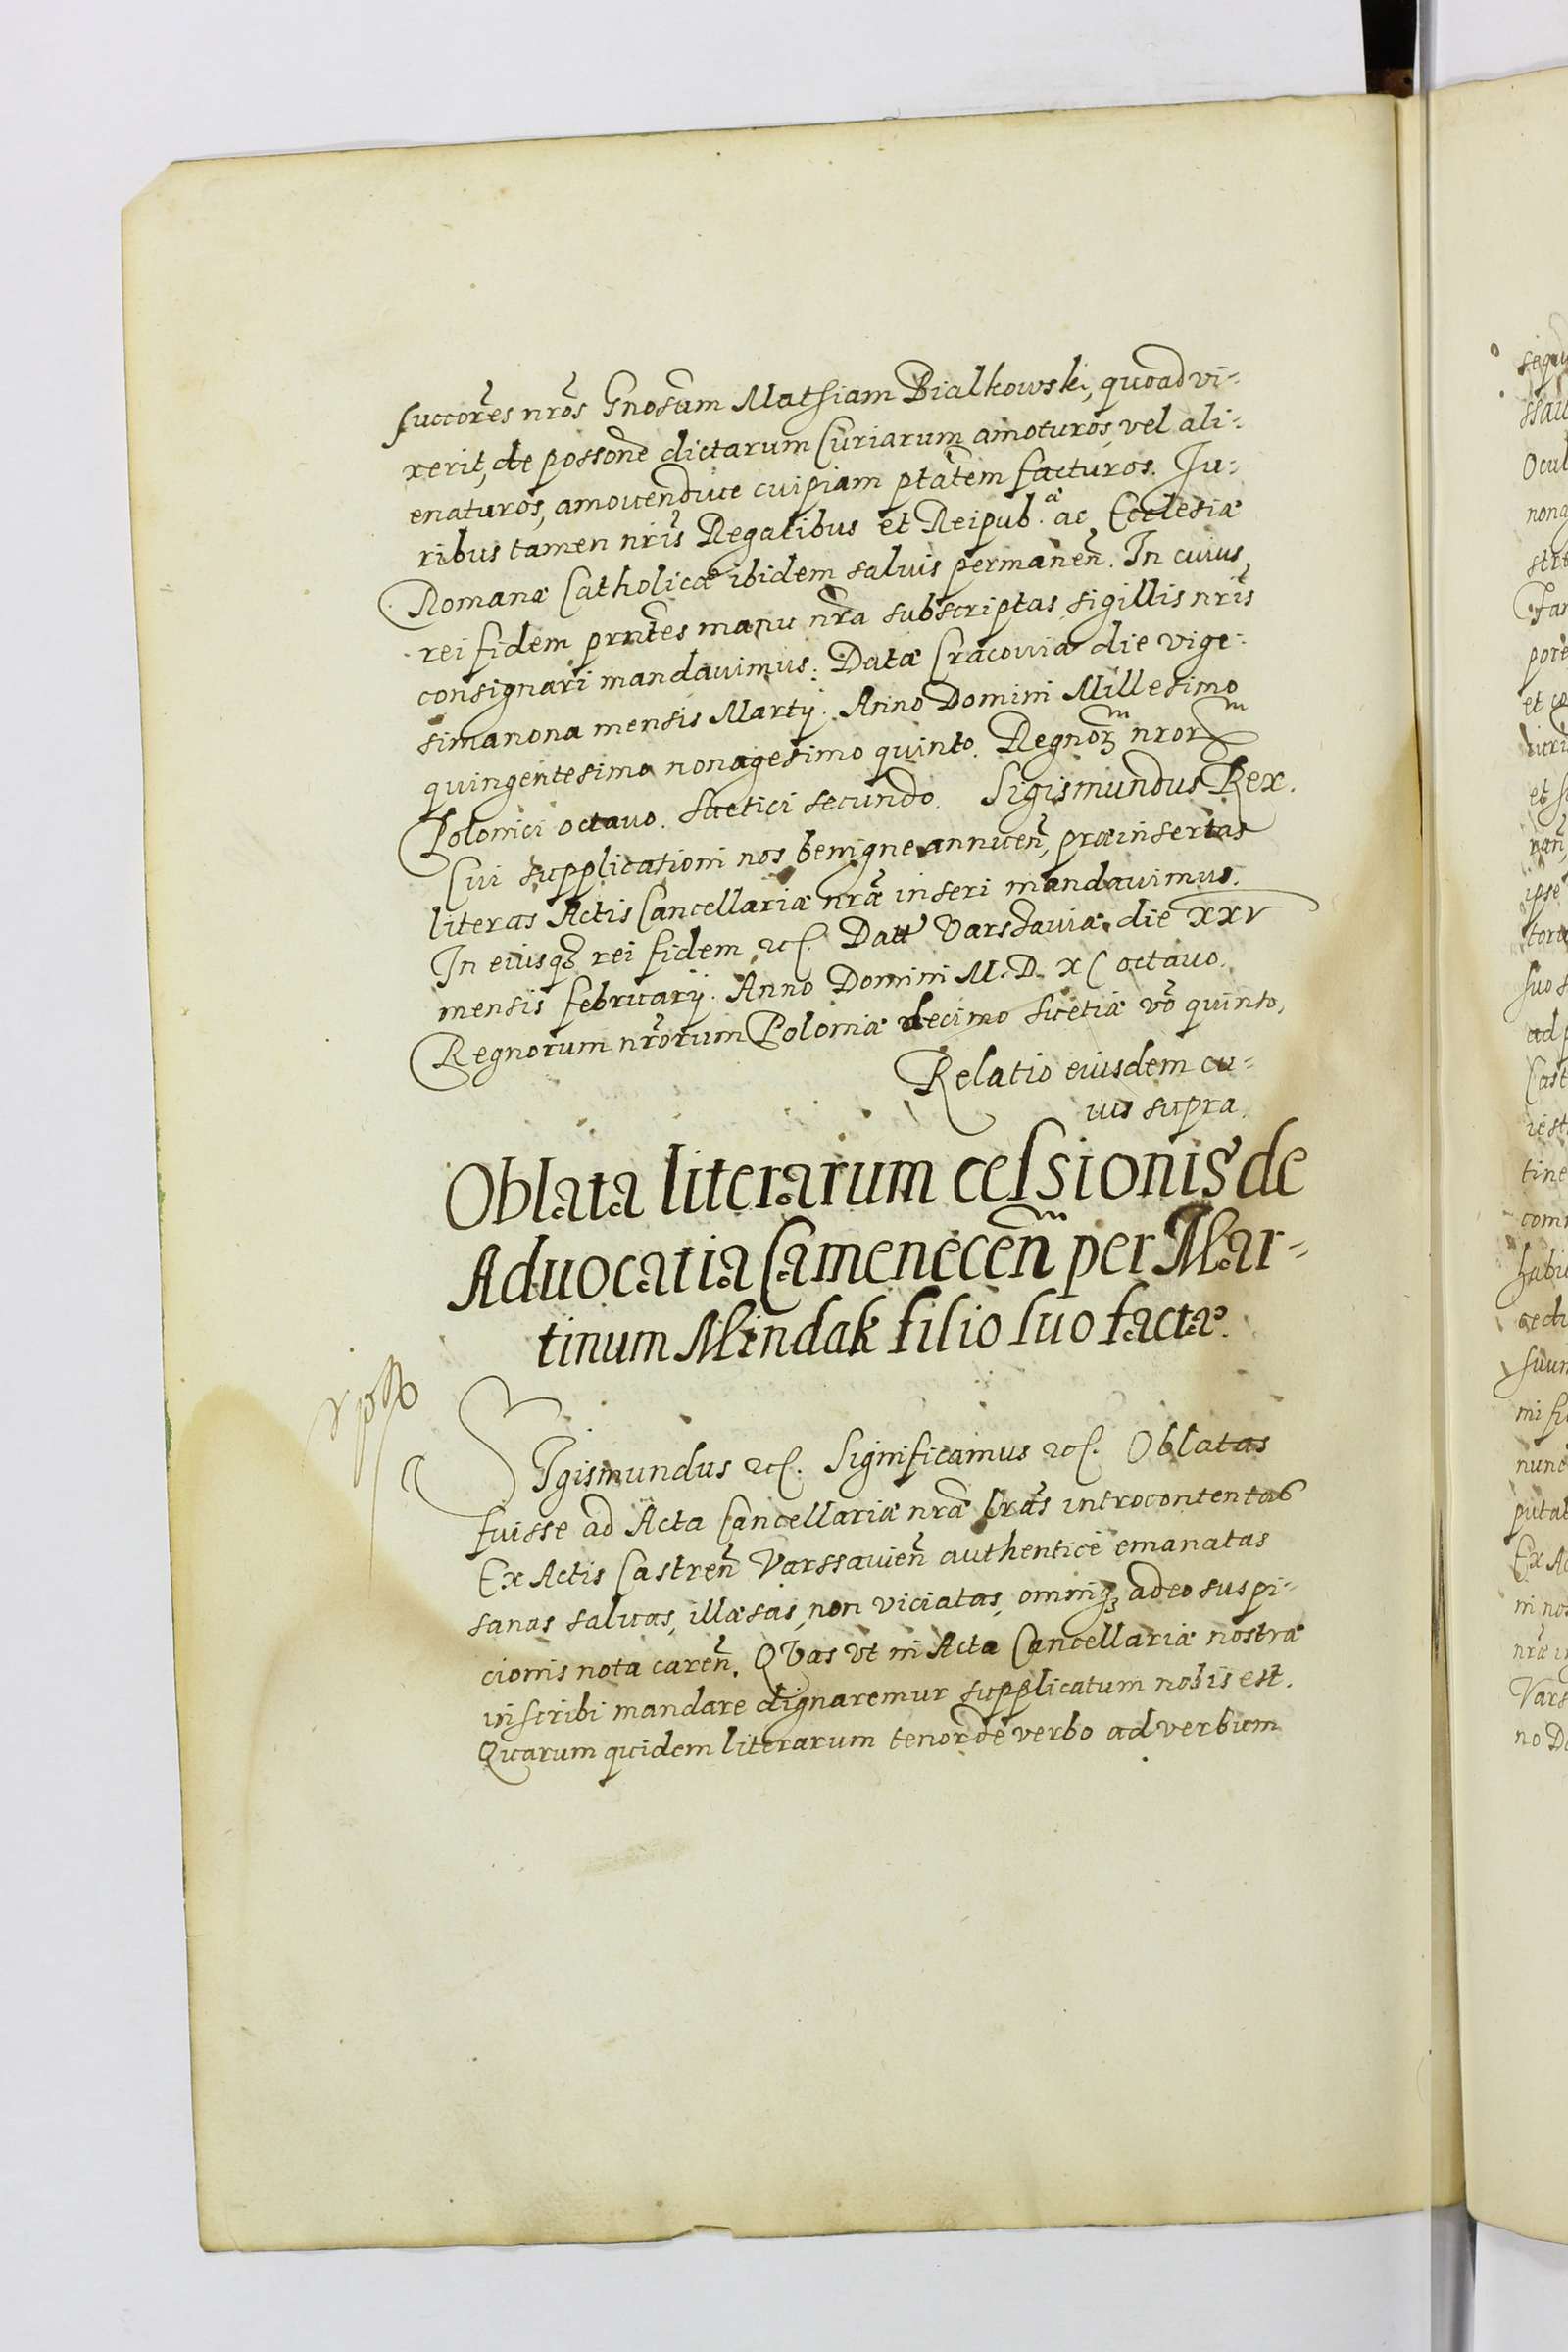 succo͠res nr͠os Gnos͠um Mathiam Bialkowski, quoad vi-
xerit, de posso͠ne dictarum Curiarum amoturos, vel ali-
enaturos, amouendiue cuipiam p͠tatem facturos. Iu-
ribus tamen nr͠is Regalibus et Reipub.ᵃᵉ ac Ecclesiæ
Romanæ Catholicæ ibidem saluis permane͠n. In cuius
rei fidem pr͠ntes manu nr͠a subscriptas, sigillis nr͠is
consignari mandauimus. Datæ Cracouiæ die vige-
simanona mensis Martij. Anno Domini Millesimo
quingentesimo nonagesimo quinto. Regnoꝝᵐ nrorᵐ
Polonici octauo. Suetici secundo. Sigismundus Rex.
Cui supplicationi nos benigne annuen͠, præinsertas
literas Actis Cancellariæ nr͠æ inseri mandauimus.
In eiusqꝫ rei fidem ꝛc. Datt Varssauiæ die XXV
mensis februarij. Anno Domini M.D. XC octauo.
Regnorum nr͠orum Poloniæ decimo Suetiæ v͠o quinto,
Relatio eiusdem cu-
ius supra.
Oblata literarum cessionis de
Aduocatia Camenecen͠ᵐ per Mar-
tinum Mindak filio suo factæ.
SIgismundus ꝛc. Significamus ꝛc. Oblatas
fuisse ad Acta Cancellariæ nr͠æ lr͠as introcontentas
Ex Actis Castren͠ Varssauien͠ authentice emanatas
sanas saluas, illæsas, non viciatas, omniqꝫ adeo suspi-
cionis nota caren͠. QVas vt in Acta Cancellariæ nostræ
inscribi mandare dignaremur supplicatum nobis est.
Quarum quidem literarum tenor de verbo ad verbum